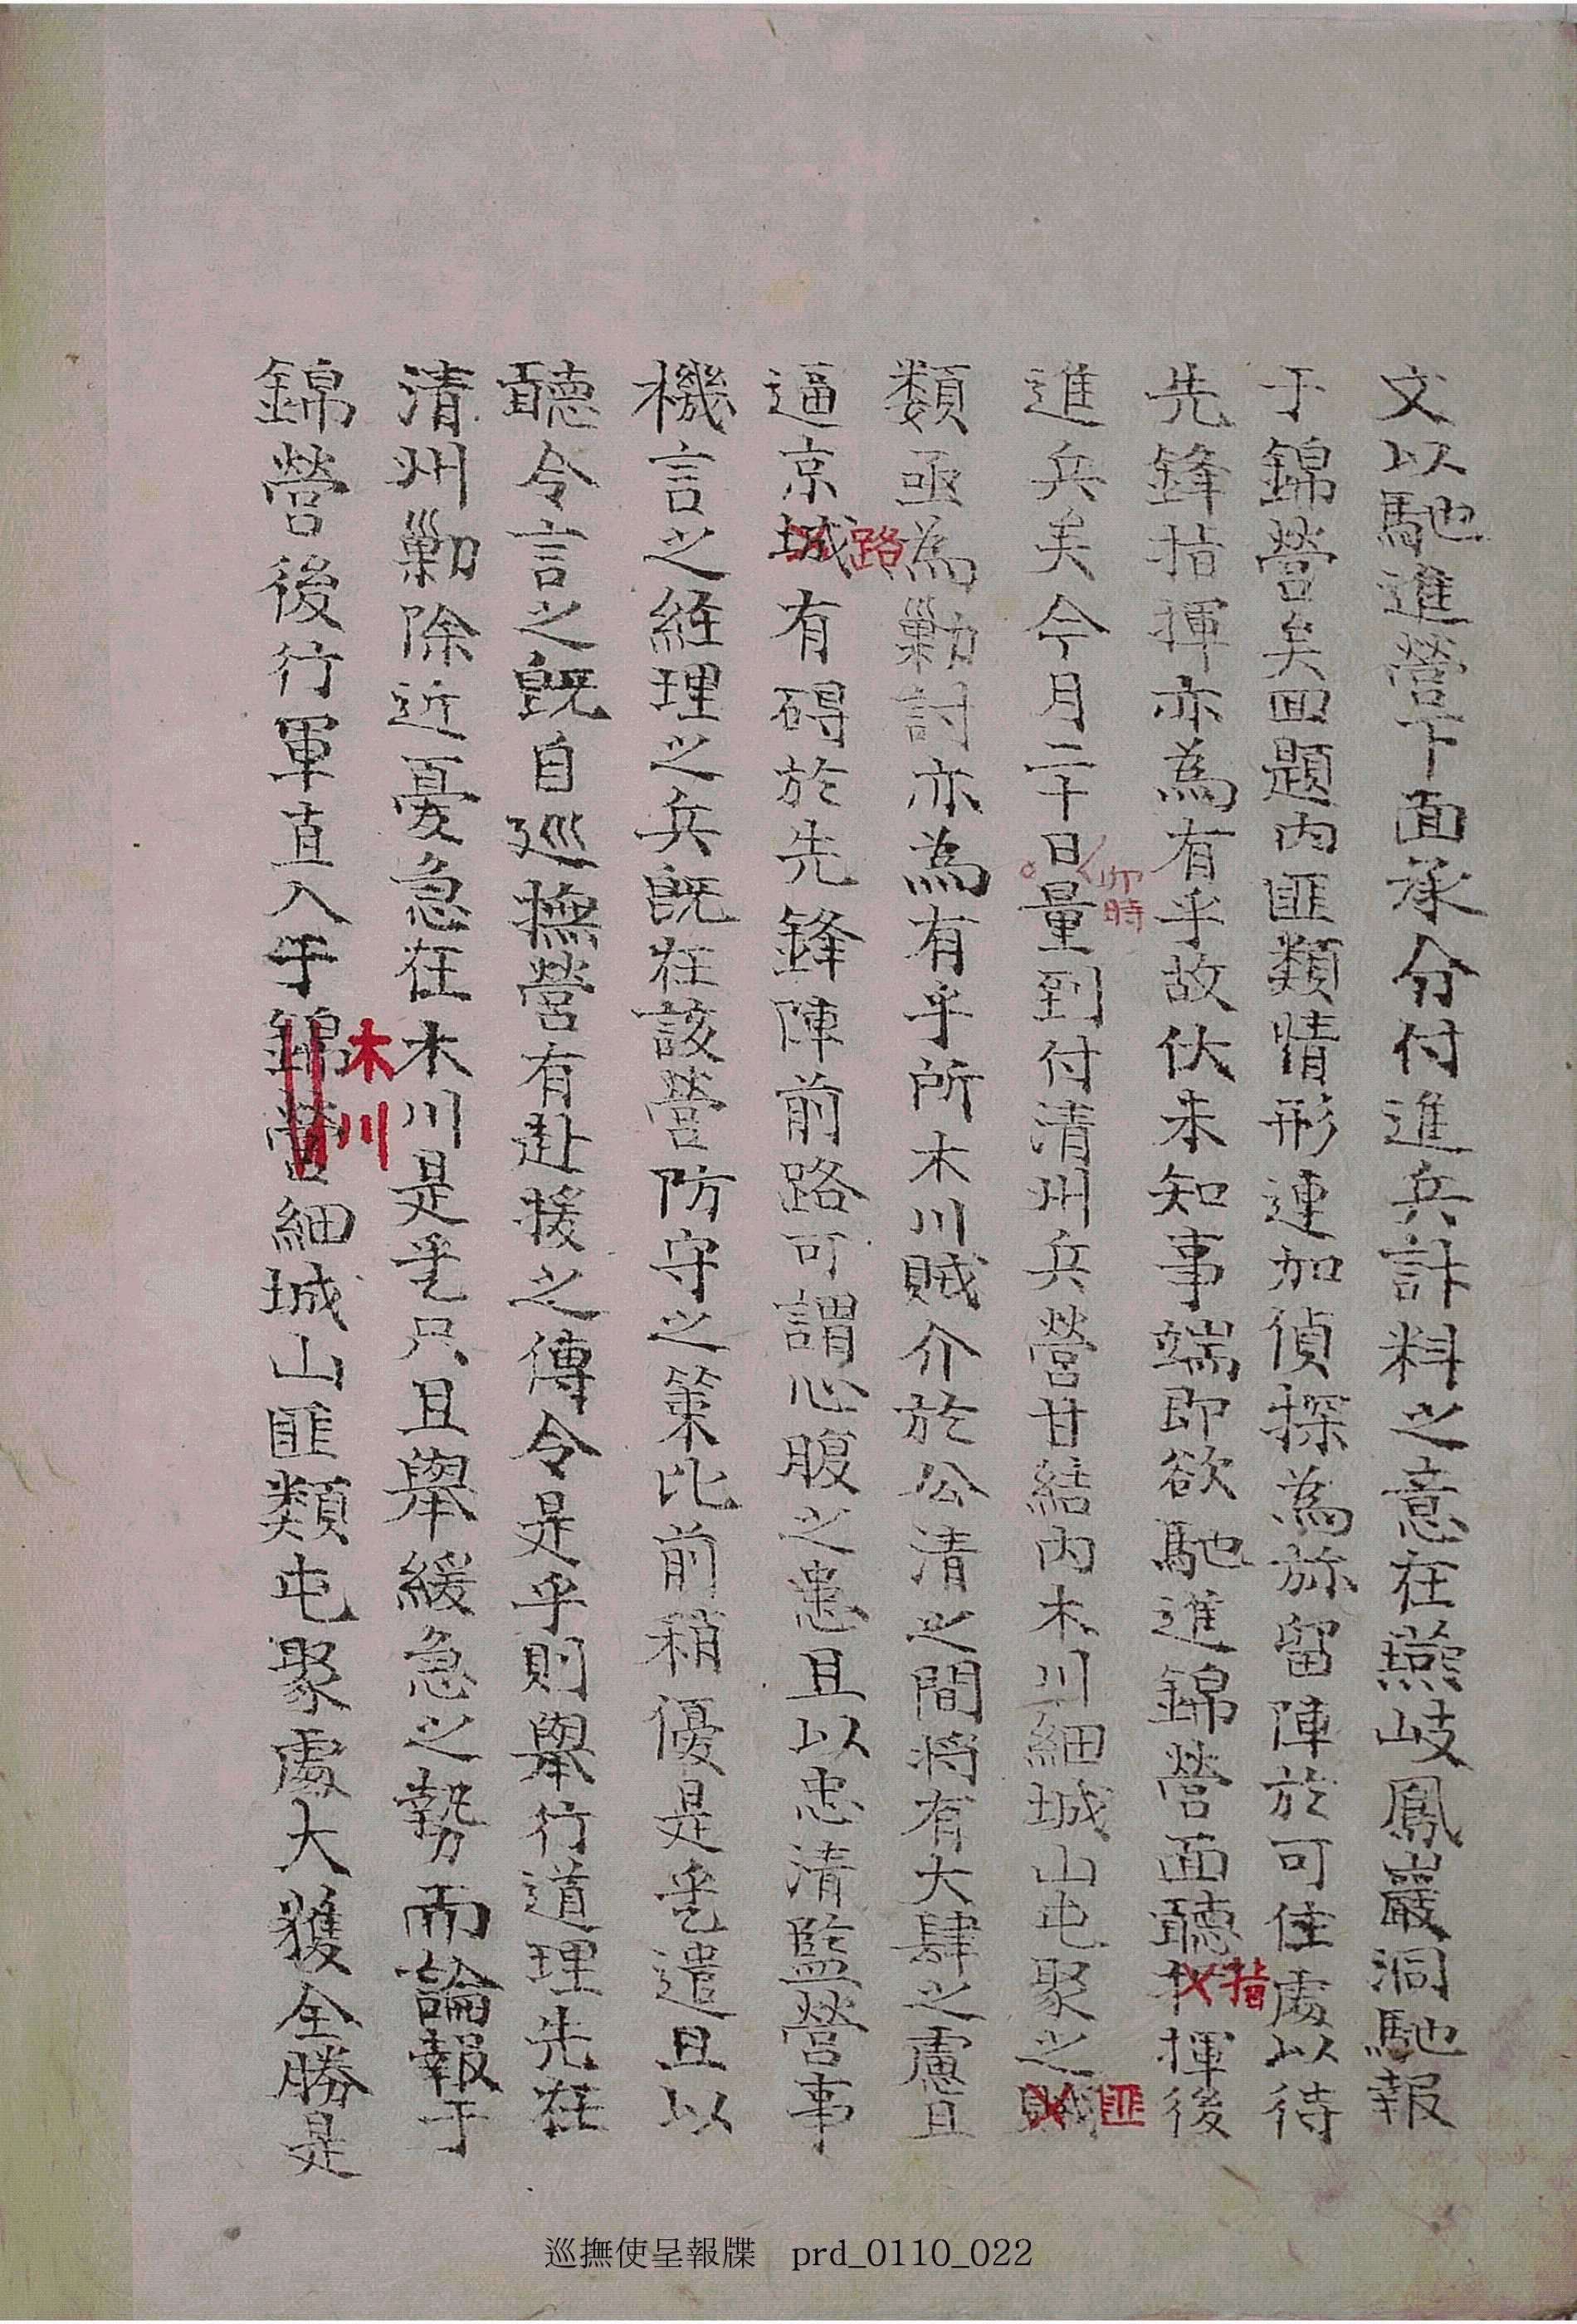 文以馳進營下面承分付進兵計料之意在燕岐鳳巖洞馳報
于錦營矣回題內匪類情形連加偵探為旀留陣於可住處以待
先鋒指揮亦為有乎故伏未知事端即欲馳進錦營面聽揮後
指
進兵矣今月二十日量到付清州兵營甘結內木川細城山屯聚之賊
卯時
匪
類亟為勦討亦為有乎所木川賊介於公清之間將有大肆之慮且
逼京城有碍於先鋒陣前路可謂心腹之患且以忠清監營事
路
機言之經理之兵既在該營防守之策比前稍優是乎遣且以
聽令言之既自巡撫營有赴援之傳令是乎則擧行道理先在
清州勦除近憂急在木川是乎只且擧緩急之勢而論報于
錦營後行軍直入于錦營細城山匪類屯聚處大獲全勝是
木川
巡撫使呈報牒 prd_0110_022